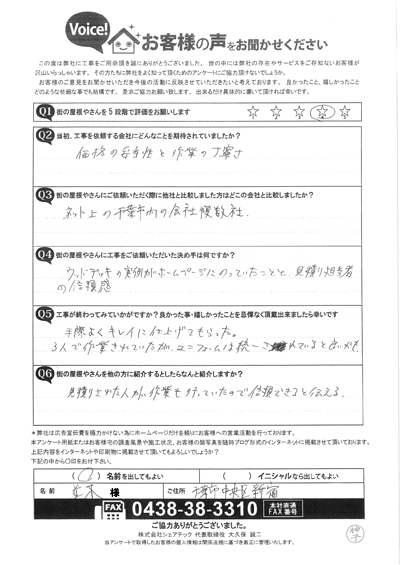 Voice! お客様の声をお聞かせください
この度は弊社に工事をご用命頂き誠にありがとうございました。世の中には弊社の存在やサービスをご存知ないお客様が
沢山いらっしゃいます。その方たちに弊社をよく知って頂くためのアンケートにご協力下さいませんでしょうか。
お客様のご意見をお聞かせいただき今後の活動に反映させていただきたいと考えております。良かったこと、嬉しかったこと
どのような些細な事でも結構です。是非ご協力お願い致します。出来るだけ具体的に書いて頂ければ幸いです。
Q1 街の屋根やさんを5段階で評価をお願いします ☆ ☆ ☆ ☆ ☆
Q2 当初、工事を依頼する会社にどんなことを期待されていましたか?
価格の妥当性と作業の丁寧さ
Q3 街の屋根やさんにご依頼いただく際に他社と比較しました方はどこの会社と比較しましたか?
ネット上の千葉市内の会社複数社.
Q4 街の屋根やさんに工事をご依頼いただいた決め手は何ですか?
ウッドデッキの実例がホームページにのっていたことと、見積り担当者
の信頼感
Q5 工事が終わってみていかがですか?良かった事・嬉しかったことを忌憚なく頂戴出来ましたら幸いです
手際よくキレイに仕上げてもらった。
3人で作業されていたが、ユニフォームは統一されていると良いかも.
Q6 街の屋根やさんを他の方に紹介するとしたらなんと紹介しますか?
見積りされた人が、作業も行っていたので信頼できると伝える.
*弊社は広告宣伝費を極力かけない為にホームページだけを頼りにお客様への営業活動を行っております。
本アンケート用紙またはお客様宅の調査風景や施工状況、お客様の顔写真を随時ブログ形式のインターネットに掲載させて頂いております。
上記内容をインターネットや印刷物に掲載させて頂いてもよろしいでしょうか?
下記の中から○印をお付け下さい。
(○)名前を出してもよい ( )イニシャルなら出してもよい
名前 並木 様 ご住所 千葉市中央区新宿
FAX 0438-38-3310 本社直通 FAX番号
ご協力ありがとうございました。
株式会社シェアテック 代表取締役 大久保 誠二
当アンケートで取得したお客様の個人情報は関係法規に基づき厳正に管理いたします。